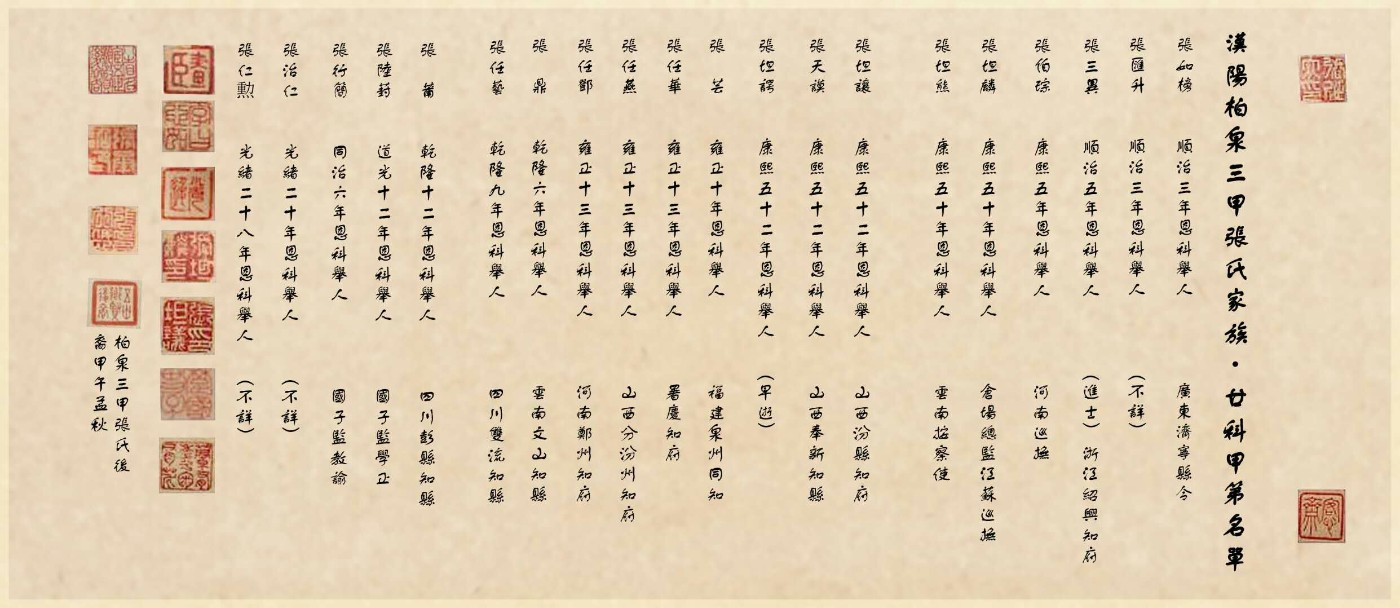 漢陽柏泉三甲張氏家族·廿科甲第名單
張如榜 順治三年恩科舉人 廣東濟寧縣令
張匯升 順治三年恩科舉人 (不詳)
張三異 順治五年恩科舉人 (進士) 浙江紹興知府
張伯琮 康熙五年恩科舉人 河南巡撫
張坦麟 康熙五十年恩科舉人 倉場總監江蘇巡撫
張坦熊 康熙五十年恩科舉人 雲南按察使
張坦讓 康熙五十二年恩科舉人 山西汾縣知府
張天謨 康熙五十二年恩科舉人 山西奉新知縣
張坦諤 康熙五十二年恩科舉人 (早逝)
張芸 雍正十年恩科舉人 福建泉州同知
張任華 雍正十三年恩科舉人 署慶知府
張任燕 雍正十三年恩科舉人 山西分汾州知府
張任鄧 雍正十三年恩科舉人 河南鄭州知府
張鼎 乾隆六年恩科舉人 雲南文山知縣
張任藝 乾隆九年恩科舉人 四川雙流知縣
張莆 乾隆十二年恩科舉人 四川彭縣知縣
張陸葑 道光十二年恩科舉人 國子監學正
張行簡 同治六年恩科舉人 國子監教諭
張治仁 光緒二十年恩科舉人 (不詳)
張仁勲 光緒二十八年恩科舉人 (不詳)
柏泉三甲張氏後
裔甲午孟秋